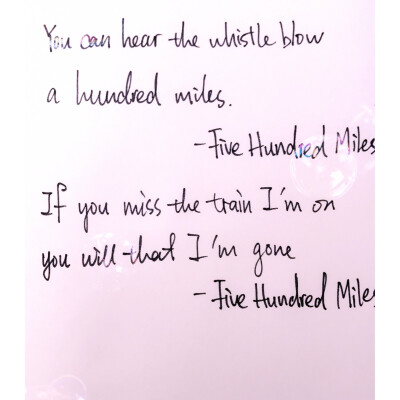 You can hear the whistle blow
a hundred miles.
-Five Hundred Miles
If you miss the train I'm on
you will that I'm gone
-Five Hundred Miles